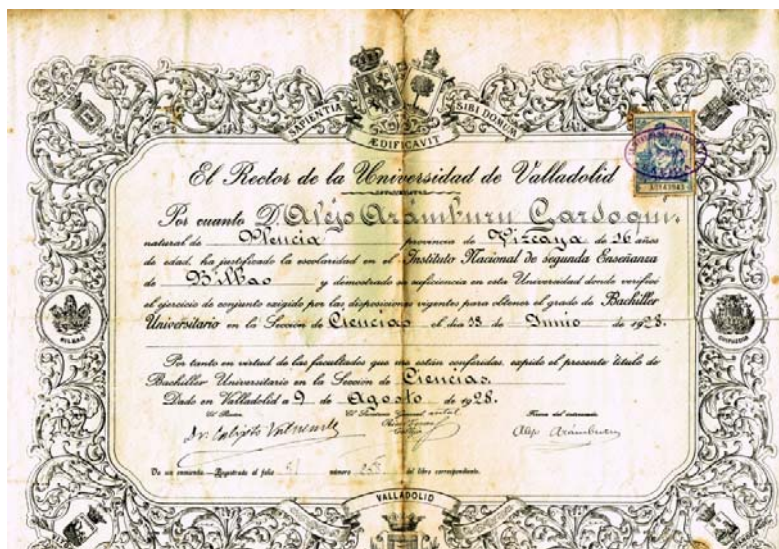 SAPIENTIA SIBI DOMUM
ÆDIFICAVIT
El Rector de la Universidad de Valladolid
Por cuanto D. Alejo Arámburu Gardoqui,
natural de Plencia provincia de Vizcaya de 16 años
de edad, ha justificado la escolaridad en el Instituto Nacional de segunda Enseñanza
de Bilbao y demostrado su suficiencia en esta Universidad donde verificó
el ejercicio de conjunto exigido por las disposiciones vigentes para obtener el grado de Bachiller
Universitario en la Sección de Ciencias el día 18 de Junio de 1928.
BILBAO
GUIPUZCOA
Por tanto en virtud de las facultades que me están conferidas, expido el presente título de
Bachiller Universitario en la Sección de Ciencias.
Dado en Valladolid a 9 de Agosto de 1928.
El Rector El Secretario General Firma del interesado
Alejo Arámburu
Registrado al folio número del libro correspondiente.
VALLADOLID